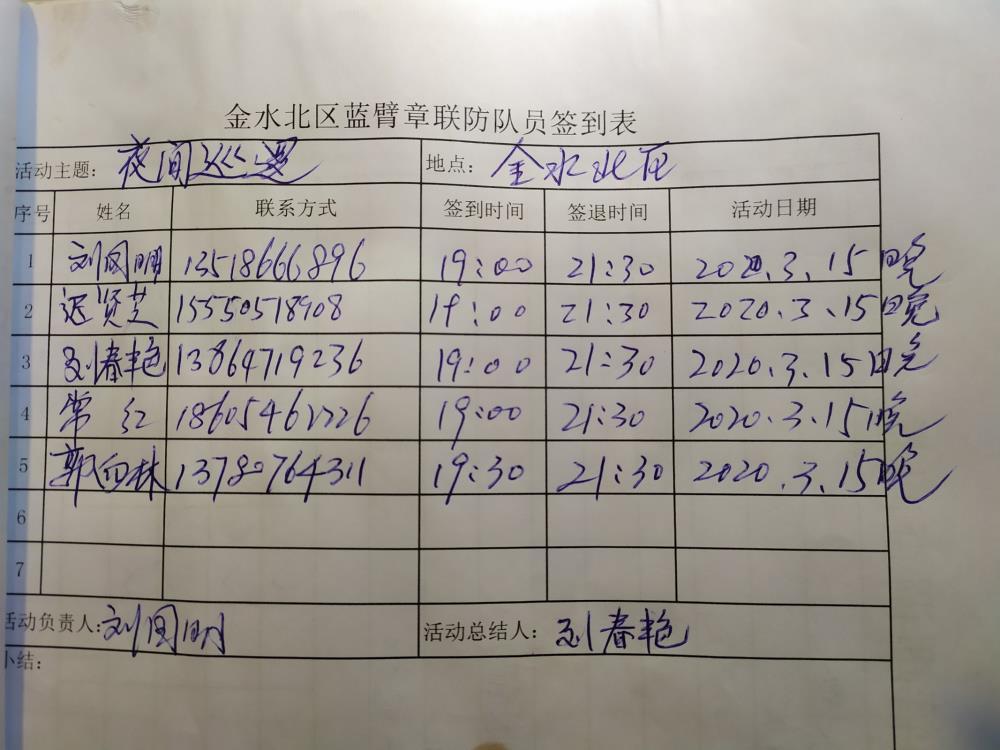 金水北区蓝臂章联防队员签到表
活动主题: 夜间巡逻 地点: 金水北区
序号 姓名 联系方式 签到时间 签退时间 活动日期
1 刘国明 13518666896 19:00 21:30 2020.3.15晚
2 迟贤芝 15550518908 19:00 21:30 2020.3.15晚
3 刘春艳 13864719236 19:00 21:30 2020.3.15日晚
4 常红 18605461226 19:00 21:30 2020.3.15晚
5 郭向林 13780764311 19:30 21:30 2020.3.15晚
6
7
活动负责人: 刘国明 活动总结人: 刘春艳
小结: